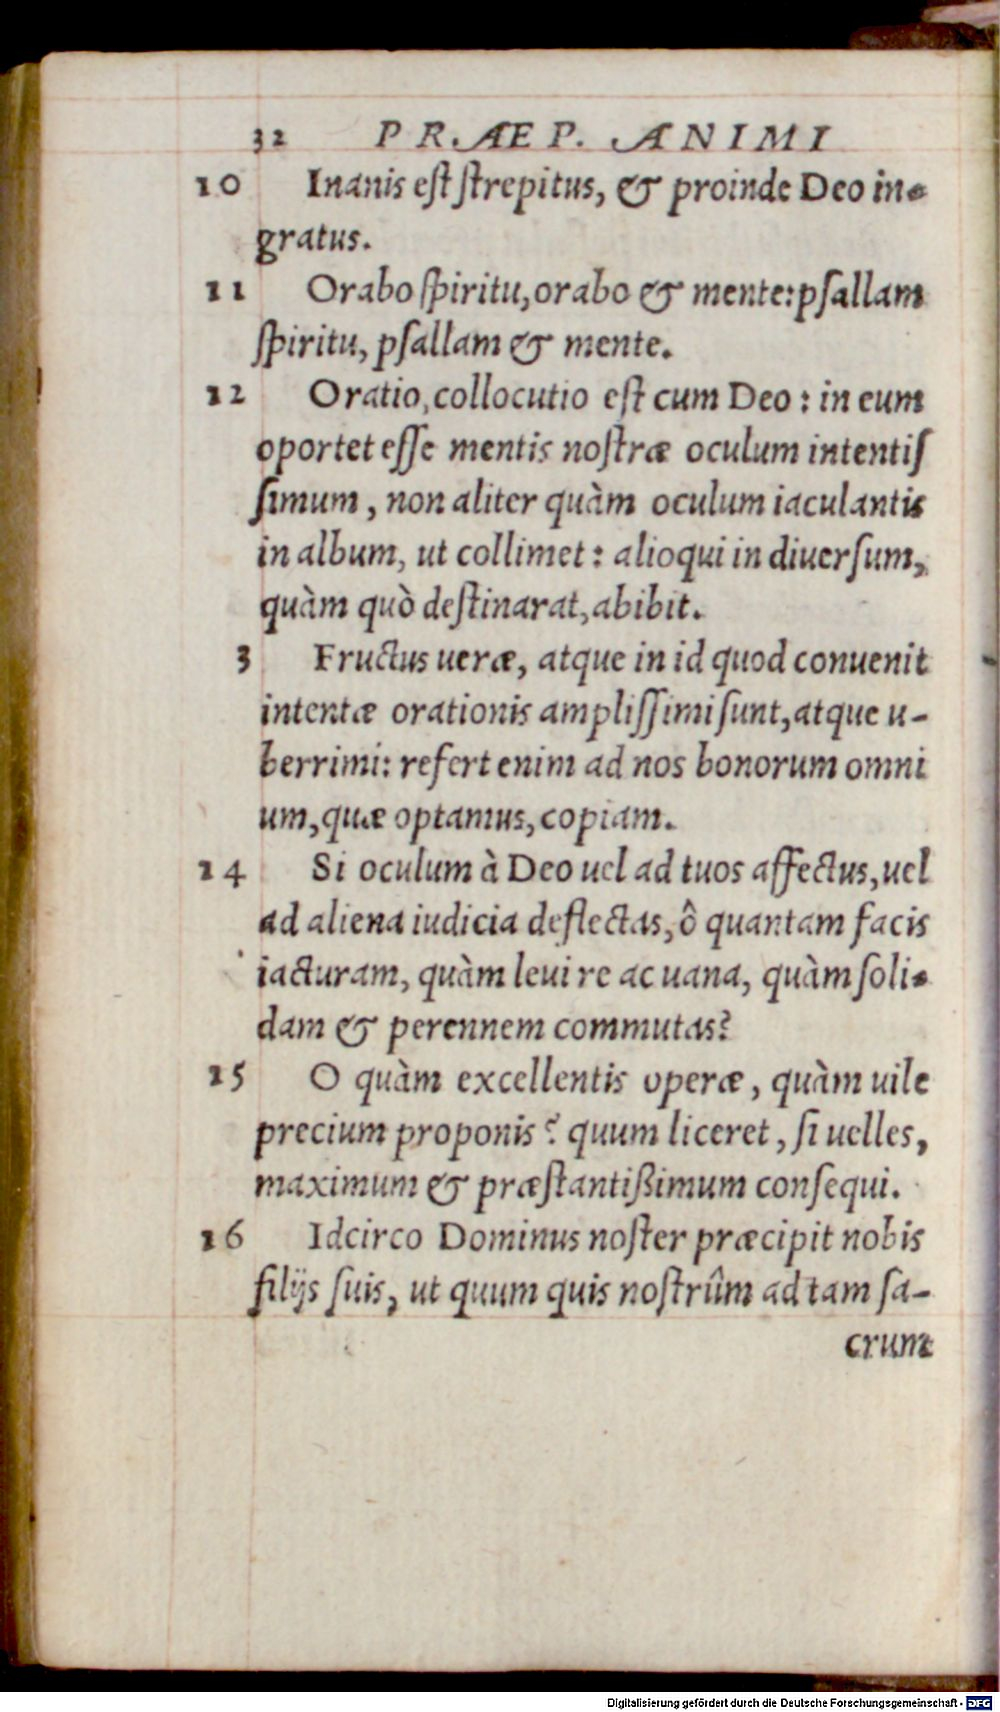 32 PRÆP. ANIMI
10 Inanis est ſtrepitus, & proinde Deo in-
gratus.
11 Orabo ſpiritu, orabo & mente: pſallam
ſpiritu, pſallam & mente.
12 Oratio, collocutio eſt cum Deo: in eum
oportet eſſe mentis noſtræ oculum intentiſ
ſimum, non aliter quàm oculum iaculantis
in album, ut collimet: alioqui in diuerſum,
quàm quò deſtinarat, abibit.
3 Fructus ueræ, atque in id quod conuenit
intentæ orationis ampliſſimi ſunt, atque u-
berrimi: refert enim ad nos bonorum omni
um, quæ optamus, copiam.
14 Si oculum à Deo uel ad tuos affectus, uel
ad aliena iudicia deflectas, ô quantam facis
iacturam, quàm leui re ac uana, quàm ſoli-
dam & perennem commutas?
15 O quàm excellentis operæ, quàm uile
precium proponis? quum liceret, ſi uelles,
maximum & præſtantißimum conſequi.
16 Idcirco Dominus noſter præcipit nobis
filijs ſuis, ut quum quis noſtrûm ad tam ſa-
crum
Digitalisierung gefördert durch die Deutsche Forschungsgemeinschaft - DFG